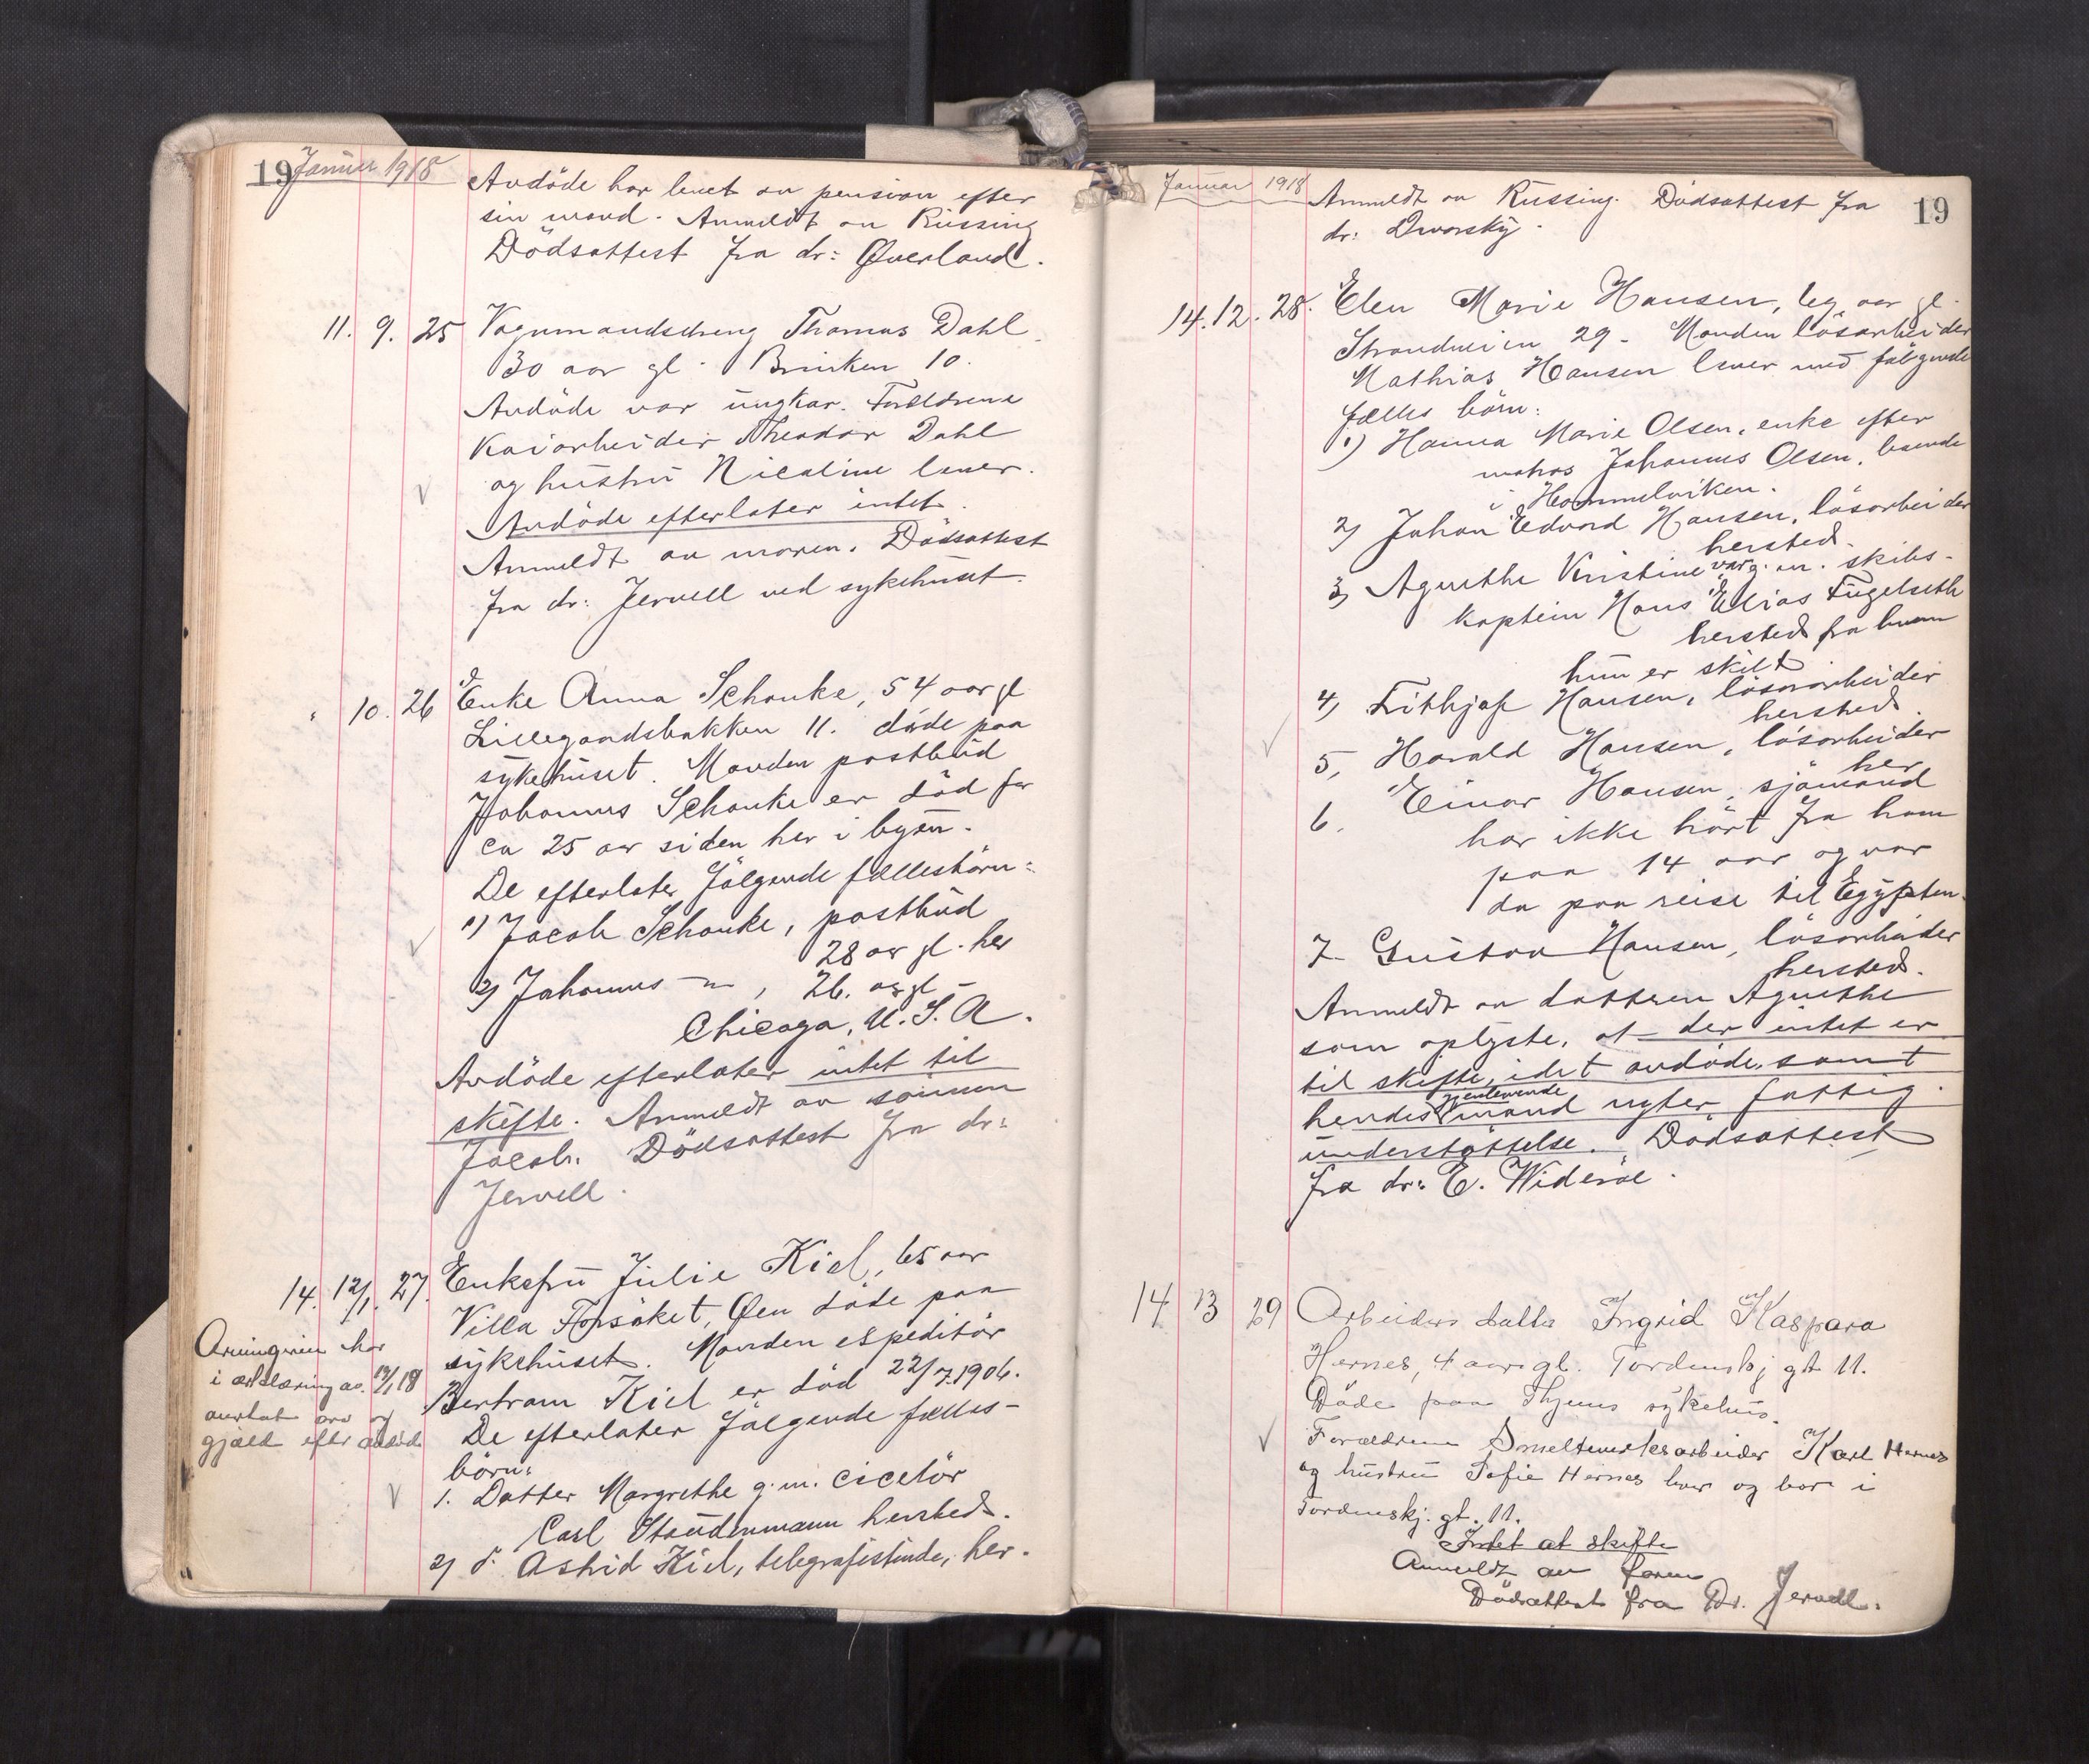 19 Januar 1918
Avdöde har levet av pension efter
sin mand. Anmeldt av Rüssing
Dödsattest fra dr: Øverland.
11. 9. 25 Vognmandsdreng Thomas Dahl
30 aar gl. Brinken 10.
Avdöde var ungkar. Forældrene
Kaiarbeider Theodor Dahl
og hustru Nicoline lever.
Avdöde efterlater intet.
Anmeldt av moren. Dödsattest
fra dr: Jervell ved sykehuset.
10. 26 Enke Anna Schanke, 54 aar gl
Lillegaardsbakken 11. döde paa
sykehuset. Manden postbud
Johannes Schanke er död for
ca 25 aar siden her i byen.
De efterlater fölgende fællesbörn:
1) Jacob Schanke, postbud
28 aar gl. her
2) Johannes — " — , 26. aar gl —
Chicago, U.S.A.
Avdöde efterlater intet til
skifte. Anmeldt av sönnen
Jacob. Dödsattest fra dr:
Jervell.
14. 12/1. 27. Enkefru Julie Kiel, 65 aar
Villa Forsöket, Øen döde paa
sykehuset. Manden expeditör
Bertram Kiel er död 22/7.1906.
De efterlater fölgende fælles-
börn:
1. Datter Margrethe g.m. ciselör
Carl Staudenmann hersteds.
2) d. Astrid Kiel, telegrafistinde, her.
Arvingerne har
i erklæring av 14/1 18
overtat arv og
gjæld efter avdöde
Januar 1918
19
Anmeldt av Rüssing. Dödsattest fra
dr: Dworsky.
14. 12. 28. Elen Marie Hansen, 69 aar gl.
Strandveien 29. Manden lösarbeider
Mathias Hansen lever med fölgende
fælles börn:
1) Hanna Marie Olsen, enke efter
matros Johannes Olsen, boende
i Hommelviken.
2) Johan Edvard Hansen, lösarbeider
hersteds.
3) Agnethe Kristine var g. m. skibs-
kaptein Hans Elias Fugelseth
hersteds fra hvem
hun er skilt
4) Frithjof Hansen, lösarbeider
hersteds.
5, Harald Hansen, lösarbeider
her
6. Einar Hansen, sjömand
har ikke hört fra ham
paa 14 aar og var
da paa reise til Egypten.
7. Gustav Hansen, lösarbeider
hersteds.
Anmeldt av datteren Agnethe
som oplyste, at der intet er
til skifte, idet avdöde, samt
hendes gjenlevende mand nyter fattig
understöttelse. Dödsattest
fra dr: E. Wideröe.
14 13 29 Arbeiders datter Ingrid Kaspara
Hernes, 4 aar gl. Tordenskj gt 11.
Döde paa Thjems sykehus.
Forældrene Smelteverksarbeider Karl Hernes
og hustru Sofie Hernes lever og bor i
Tordenskj. gt. 11.
Intet at skifte
Anmeldt av faren
Dödsattest fra Dr. Jervell.